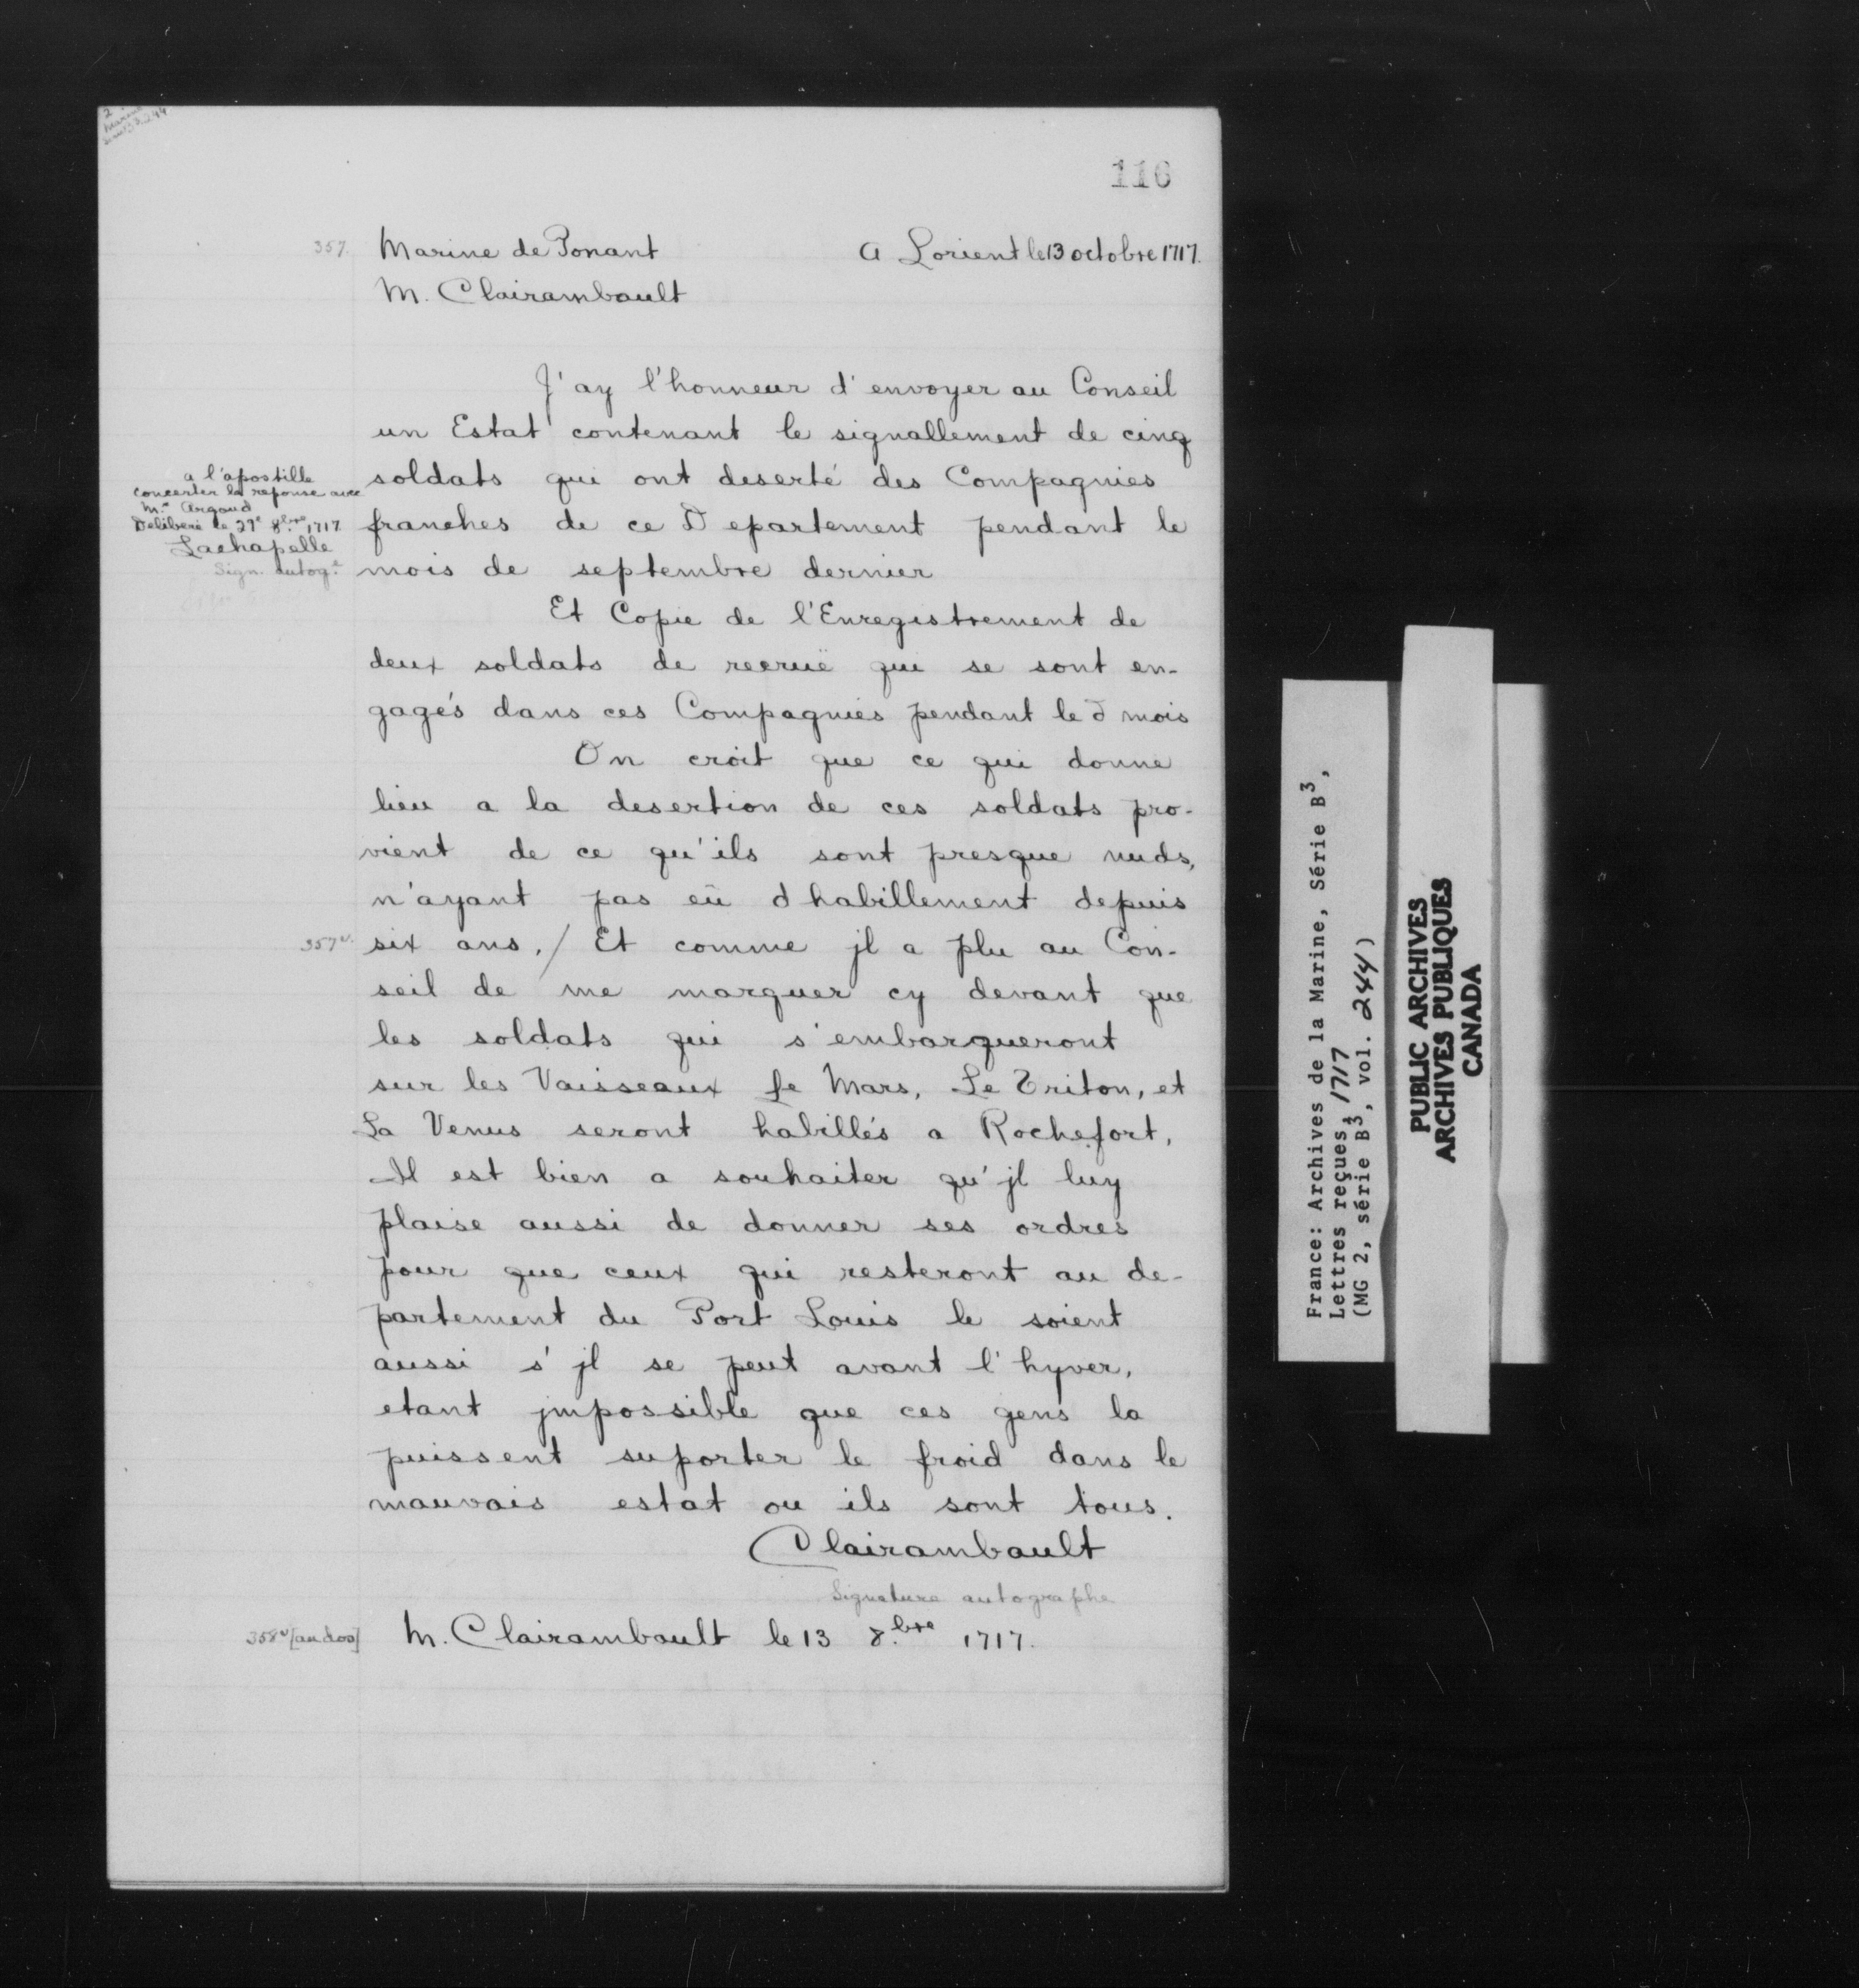 2
Marine
116
357. Marine de Ponant A Lorient le 13 octobre 1717.
M. Clairambault
J'ay l'honneur d'envoyer au Conseil
un Estat contenant le signallement de cinq
soldats qui ont deserté des Compagnies
franches de ce Departement pendant le
mois de septembre dernier
a l'apostille
concerter la reponse avec
M.r Argoud
Deliberé le 29e 8bre 1717
Lachapelle
Sign. autog.e
Et Copie de l'Enregistrement de
deux soldats de recruë qui se sont en-
gagés dans ces Compagnies pendant le d mois
On croit que ce qui donne
lieu a la desertion de ces soldats pro-
vient de ce qu'ils sont presque nuds,
n'ayant pas eü d habillement depuis
357v. six ans. / Et comme jl a plu au Con-
seil de me marquer cy devant que
les soldats qui s'embarqueront
sur les Vaisseaux Le Mars, Le Triton, et
La Venus seront habillés a Rochefort,
Il est bien a souhaiter qu'jl luy
plaise aussi de donner ses ordres
pour que ceux qui resteront au de-
partement du Port Louis le soient
aussi s'jl se peut avant l'hyver,
etant jmpossible que ces gens la
puissent suporter le froid dans le
mauvais estat ou ils sont tous.
Clairambault
Signature autographe
358v [au dos] M. Clairambault le 13 8.bre 1717.
France: Archives de la Marine, Série B3,
Lettres reçues, 1717
(MG 2, série B3, vol. 244)
PUBLIC ARCHIVES
ARCHIVES PUBLIQUES
CANADA